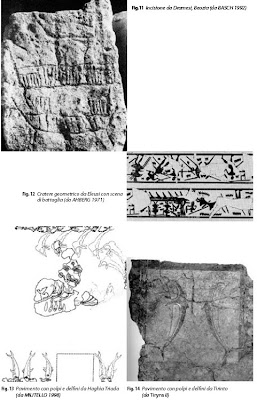 Fig.11 Incisione da Dramesi, Beozia (da BASCH 1992)
Fig. 12 Cratere geometrico da Eleusi con scena
di battaglia (da AHBERG 1971)
Fig. 13 Pavimento con polpi e delfini da Haghia Triada
(da MILITELLO 1998)
Fig. 14 Pavimento con polpi e delfini da Tirinto
(da Tiryns II)